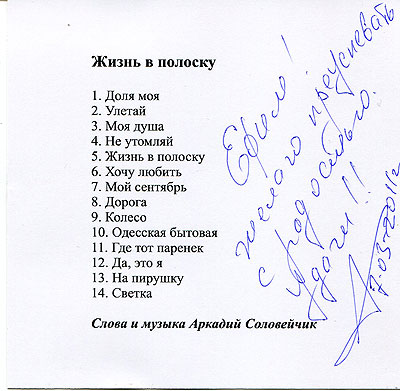 Жизнь в полоску
1. Доля моя
2. Улетай
3. Моя душа
4. Не утомляй
5. Жизнь в полоску
6. Хочу любить
7. Мой сентябрь
8. Дорога
9. Колесо
10. Одесская бытовая
11. Где тот паренек
12. Да, это я
13. На пирушку
14. Светка
Слова и музыка Аркадий Соловейчик
преуспевать
с радостью.
удачи!!